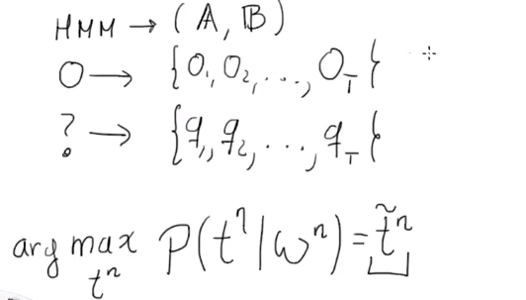 HMM → (A, B)
O → {O₁, O₂, ..., O_T}
? → {q₁, q₂, ..., q_T}
arg max_{tⁿ} P(tⁿ | wⁿ) = t̃ⁿ